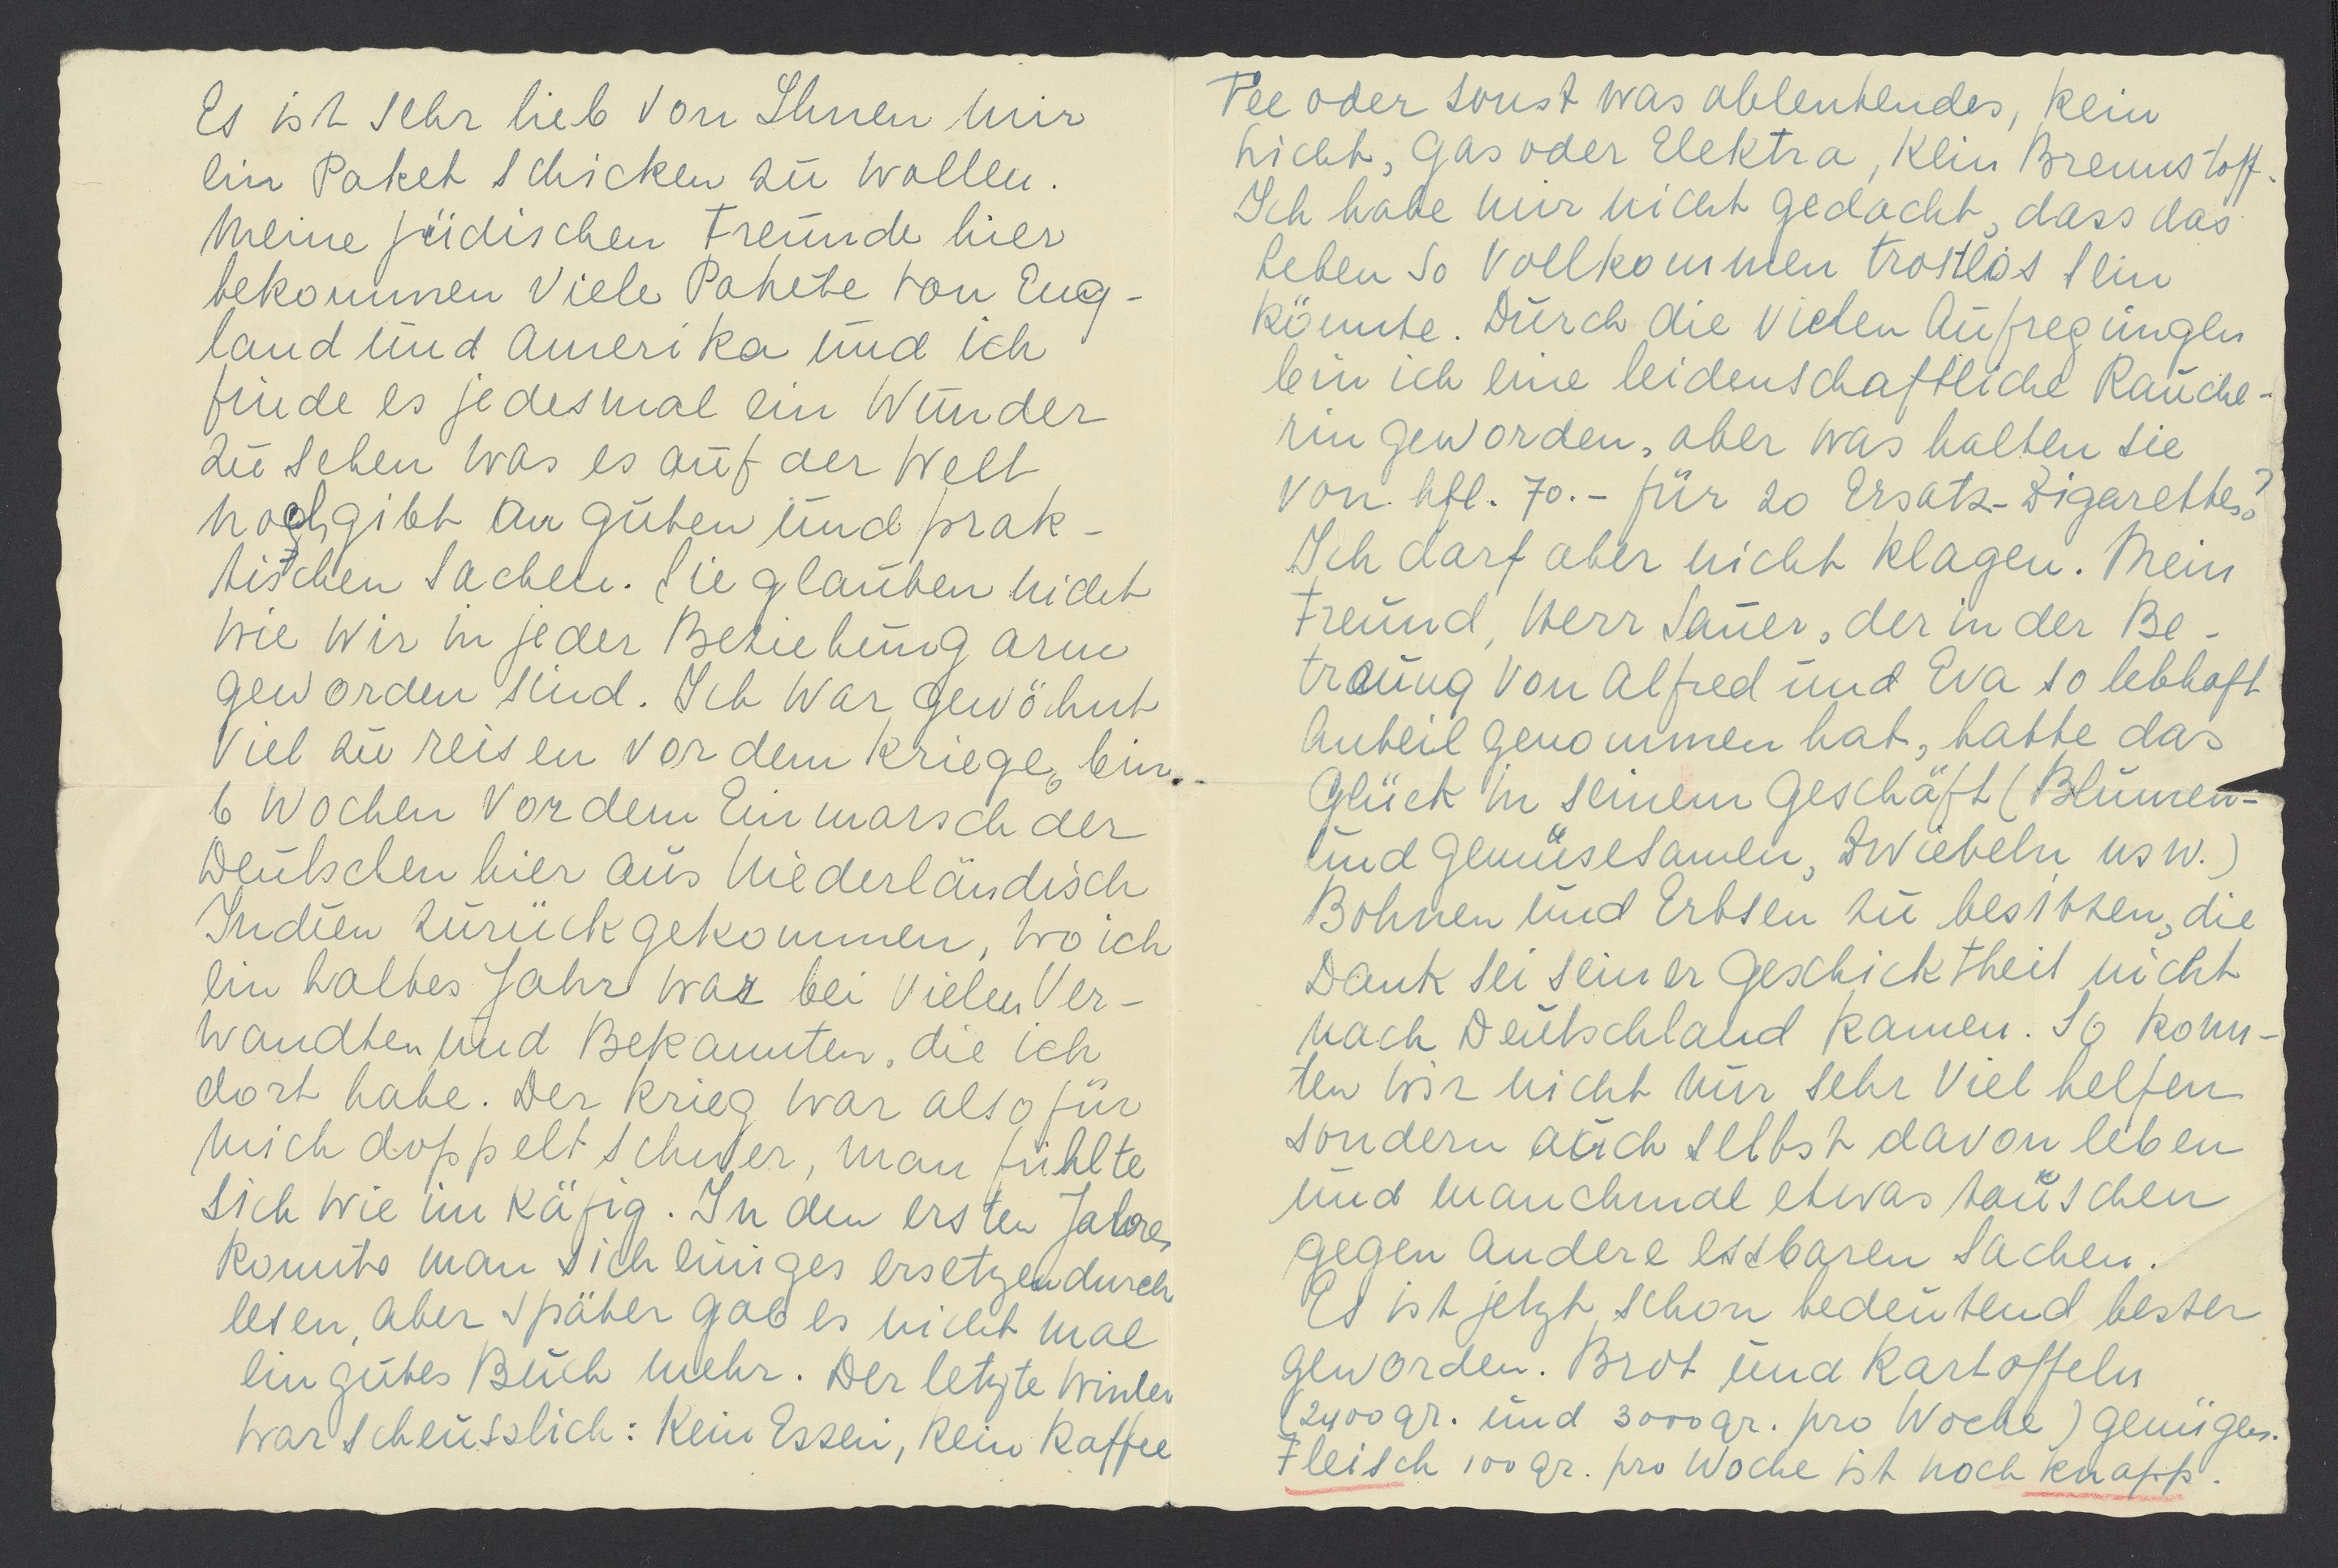 Es ist sehr lieb von Ihnen mir
ein Paket schicken zu wollen.
Meine jüdischen Freunde hier
bekommen viele Pakete von Eng-
land und Amerika und ich
finde es jedesmal ein Wunder
zu sehen was es auf der Welt
noch gibt an guten und prak-
tischen Sachen. Sie glauben nicht
wie wir in jeder Beziehung arm
geworden sind. Ich war gewöhnt
viel zu reisen vor dem Kriege, bin
6 Wochen vor dem Einmarsch der
Deutschen hier aus Niederländisch
Indien zurückgekommen, wo ich
ein halbes Jahr war bei vielen Ver-
wandten und Bekannten, die ich
dort habe. Der Krieg war also für
mich doppelt schwer, man fühlte
sich wie im Käfig. In den ersten Jahren
konnte man sich einiges ersetzen durch
lesen, aber später gab es nicht mal
ein gutes Buch mehr. Der letzte Winter
war scheusslich: Kein Essen, Kein Kaffee
Tee oder sonst was ablenkendes, kein
Licht, Gas oder Elektra, Kein Brennstoff.
Ich habe mir nicht gedacht, dass das
Leben so vollkommen trostlos sein
könnte. Durch die vielen Aufregungen
bin ich eine leidenschaftliche Rauche-
rin geworden, aber was halten Sie
von hfl. 70.- für 20 Ersatz-Zigaretten?
Ich darf aber nicht klagen. Mein
Freund, Herr Sauer, der in der Be-
trauung von Alfred und Eva so lebhaft
Anteil genommen hat, hatte das
Glück in seinem Geschäft (Blumen-
und Gemüsesamen, Zwiebeln usw.)
Bohnen und Erbsen zu besitzen, die
Dank sei seiner Geschicktheit nicht
nach Deutschland kamen. So konn-
ten wir nicht nur sehr viel helfen
sondern auch selbst davon leben
und manchmal etwas tauschen
gegen andere essbaren Sachen.
Es ist jetzt schon bedeutend besser
geworden. Brot und Kartoffeln
(2400 gr. und 3000 gr. pro Woche) genügen.
Fleisch 100 gr. pro Woche ist noch knapp.